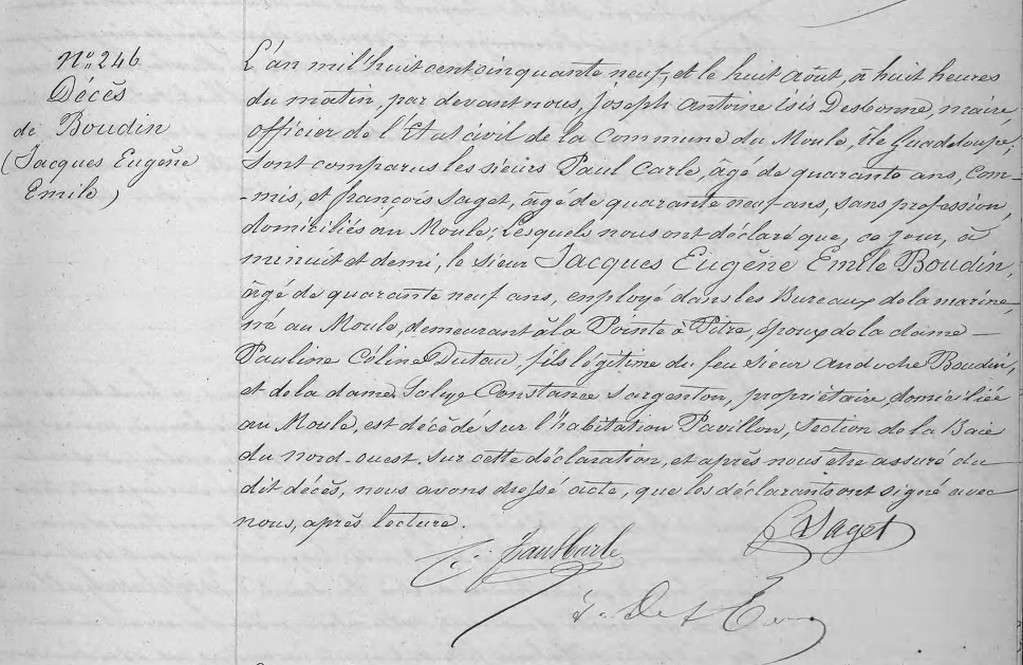 N° 246
Décès
de Boudin
(Jacques Eugène
Emile)
L'an mil huit cent cinquante neuf, et le huit août, à huit heures
du matin, par devant nous, Joseph Antoine Isis Desbonne, maire,
officier de l'Etat civil de la Commune du Moule, île Guadeloupe;
Sont comparus les sieurs Paul Carle, âgé de quarante ans, Com-
-mis, et françois Saget, âgé de quarante neuf ans, sans profession,
domiciliés au Moule; Lesquels nous ont déclaré que, ce jour, à
minuit et demi, le sieur Jacques Eugène Emile Boudin,
âgé de quarante neuf ans, employé dans les Bureaux de la marine,
né au Moule, demeurant à la Pointe à Pitre, époux de la dame —
Pauline Céline Dutau, fils légitime du feu sieur Andoche Boudin,
et de la dame Constance Sargenton, propriétaire, domiciliée
au Moule, est décédé sur l'habitation Pavillon, Section de la Baie
du nord-ouest. Sur cette déclaration, et après nous être assuré du
dit décès, nous avons dressé acte, que les déclarants ont signé avec
nous, après lecture.
Saget
Paul Carle